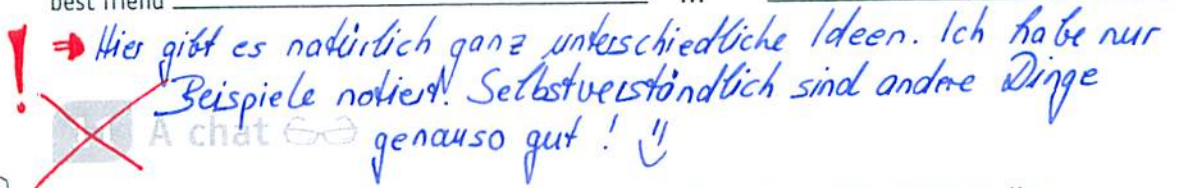 best friend ...
! ⇒ Hier gibt es natürlich ganz unterschiedliche Ideen. Ich habe nur
Beispiele notiert! Selbstverständlich sind andere Dinge
A chat genauso gut! :)